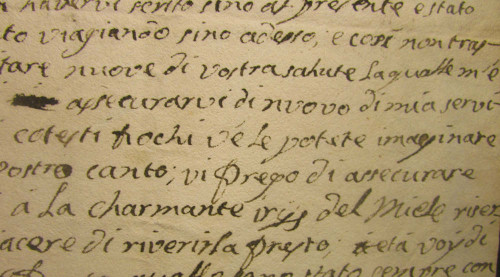 havervi scrito sino al presente e stato
to viagiando sino adesso; e così non tras
tare nuove di vostra salute laqualle m'è
assecurarvi di nuovo di mia servi
cotesti fiochi vè le potete imaginare
vostro canto; vi prego di assecurare
á la charmante irys del Miele river
iacere di riverirla presto, età voy di
stato sempre com